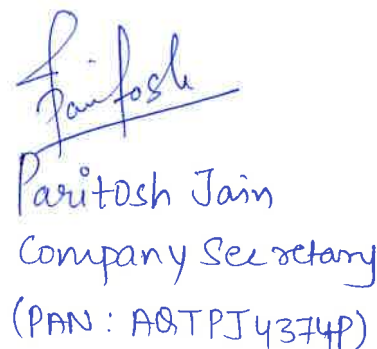 Paritosh
Paritosh Jain
Company Secretary
(PAN : AQTPJ4374P)